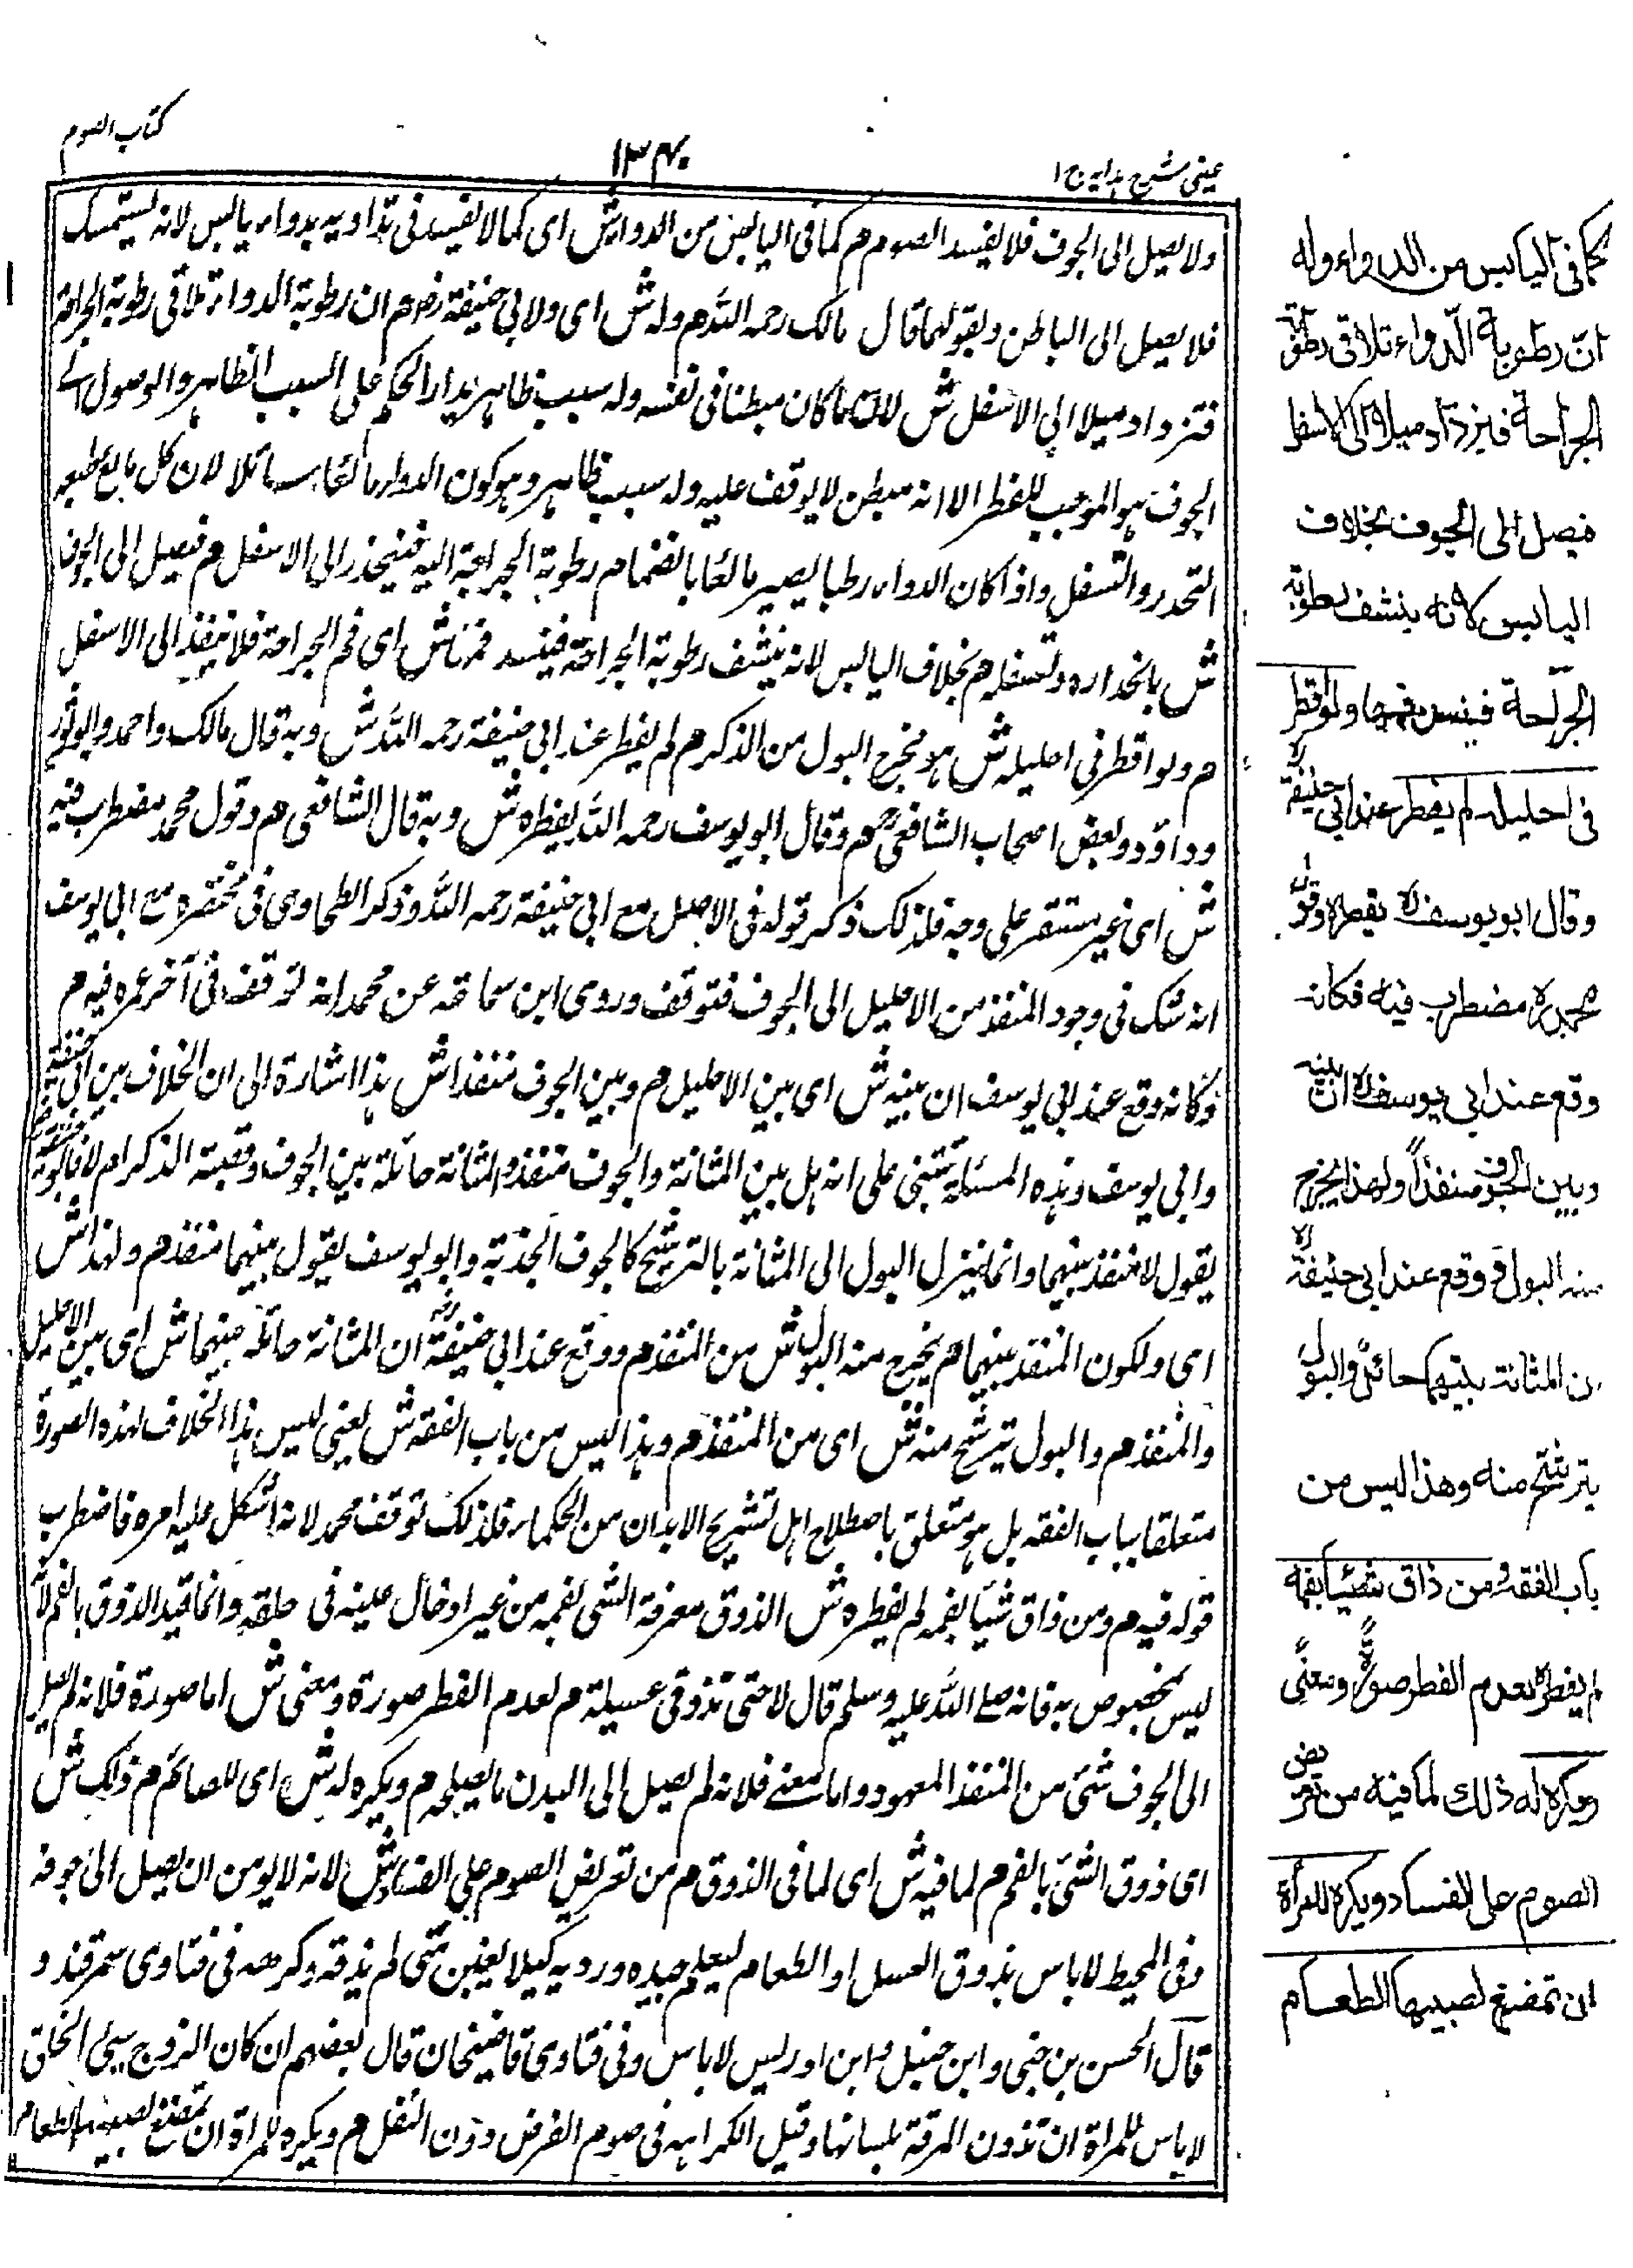 عینی شرح ہدایہ ج ۱
۱۳۴۰
کتاب الصوم
ولا یصل الی الجوف فلا یفسد الصوم م کما فی الیابس من الدواء ش ای کما لا یفسد فی تداویہ بدواء یابس لانہ یستمسک
فلا یصل الی الباطن وبقولہما قال مالک رحمہ اللہ م ولہ ش ای ولابی حنیفۃ رض م ان رطوبۃ الدواء تلاقی رطوبۃ الجراحۃ
فتزداد میلا الی الاسفل ش لان ما کان مبطنا فی نفسہ ولہ سبب ظاہر یدار الحکم علی السبب الظاہر والوصول الے
الجوف ہو الموجب للفطر الا انہ مبطن لا یوقف علیہ ولہ سبب ظاہر وہو کون الدواء مائعا سائلا لان کل مائع بطبعہ
التحدر والتسفل واذا کان الدواء رطبا یصیر مائعا بانضمام رطوبۃ الجراحۃ الیہ فینحدر الی الاسفل م فیصل الی الجوف
ش بانحدارہ وتسفلہ م بخلاف الیابس لانہ ینشف رطوبۃ الجراحۃ فینسد فمہا ش ای فم الجراحۃ فلا ینفذ الی الاسفل
م ولو اقطر فی احلیلہ ش ہو مخرج البول من الذکر م لم یفطر عند ابی حنیفۃ رحمہ اللہ ش وبہ قال مالک واحمد وابو ثور
وداؤد وبعض اصحاب الشافعی رح م وقال ابو یوسف رحمہ اللہ یفطرہ ش وبہ قال الشافعی م وقول محمد مضطرب فیہ
ش ای غیر مستقر علی وجہ فلذلک ذکر قولہ فی الاصل مع ابی حنیفۃ رحمہ اللہ وذکر الطحاوی فی مختصرہ مع ابی یوسف
انہ شک فی وجود المنفذ من الاحلیل الی الجوف فتوقف وروی ابن سماعۃ عن محمد انہ توقف فی آخر عمرہ فیہ م
وکانہ وقع عند ابی یوسف ان بینہ ش ای بین الاحلیل م وبین الجوف منفذا ش ہذا اشارۃ الی ان الخلاف بین ابی حنیفۃ
وابی یوسف وہذہ المسئلۃ تبتنی علی انہ ہل بین المثانۃ والجوف منفذ والمثانۃ حائلۃ بین الجوف وقصبۃ الذکر ام لا فابو حنیفۃ
یقول لا منفذ بینہما وانما ینزل البول الی المثانۃ بالترشح کالجوف الجذبۃ وابو یوسف یقول بینہما منفذ م ولہذا ش
ای ولکون المنفذ بینہما م یخرج منہ البول ش من المنفذ م ووقع عند ابی حنیفۃ رح ان المثانۃ حائلۃ بینہما ش ای بین الاحلیل
والمنفذ م والبول یترشح منہ ش ای من المنفذ م وہذا لیس من باب الفقہ ش یعنی لیس ہذا الخلاف لہذہ الصورۃ
متعلقا بباب الفقہ بل ہو متعلق باصطلاح اہل تشریح الابدان من الحکماء فلذلک توقف محمد لانہ اشکل علیہ امرہ فاضطرب
قولہ فیہ م ومن ذاق شیئا بفمہ لم یفطرہ ش الذوق معرفۃ الشی بفمہ من غیر ادخال عینہ فی حلقہ وانما قید الذوق بالفم لانہ
لیس بخصوص بہ فانہ صلے اللہ علیہ وسلم قال لا حتی تذوقی عسیلۃ م لعدم الفطر صورۃ ومعنی ش اما صورۃ فلانہ لم یصل
الی الجوف شئ من المنفذ المعہود واما معنے فلانہ لم یصل الی البدن ما یصلحہ م ویکرہ لہ ش ای للصائم م ذلک ش
ای ذوق الشئ بالفم م لما فیہ ش ای لما فی الذوق م من تعریض الصوم علی الفساد ش لانہ لا یومن ان یصل الی جوفہ
وفی المحیط لا باس بذوق العسل او الطعام لیعلم جیدہ وردیہ کیلا یغبن متی لم یذقہ وکرھہ فی فتاوی سمرقند و
قال الحسن بن حیی وابن حنبل وابن ادریس لا باس وفی فتاوی قاضیخان قال بعضہم ان کان الزوج سیئ الخلق
لا باس للمراۃ ان تذوق المرقۃ بلسانہا وقیل الکراہۃ فی صوم الفرض دون النفل م ویکرہ للمراۃ ان تمضغ لصبیہا الطعام
کما فی الیابس من الدواء ولہ
ان رطوبۃ الدواء تلاقی رطوبۃ
الجراحۃ فیزداد میلا الی الاسفل
فیصل الی الجوف بخلاف
الیابس لانہ ینشف رطوبۃ
الجراحۃ فینسد فمہا ولو اقطر
فی احلیلہ لم یفطر عند ابی حنیفۃ رہ
وقال ابو یوسف رہ یفطرہ وقول
محمد رہ مضطرب فیہ فکانہ
وقع عند ابی یوسف رہ ان بینہ
وبین الجوف منفذاً ولہذا یخرج
منہ البول ووقع عند ابی حنیفۃ رہ
ان المثانۃ بینہما حائل والبول
یترشح منہ وھذا لیس من
باب الفقہ ومن ذاق شیئا بفمہ
لم یفطرہ لعدم الفطر صورۃً ومعنًی
ویکرہ لہ ذلک لما فیہ من تعریض
الصوم علی الفساد ویکرہ للمرأۃ
ان تمضغ لصبیہا الطعام